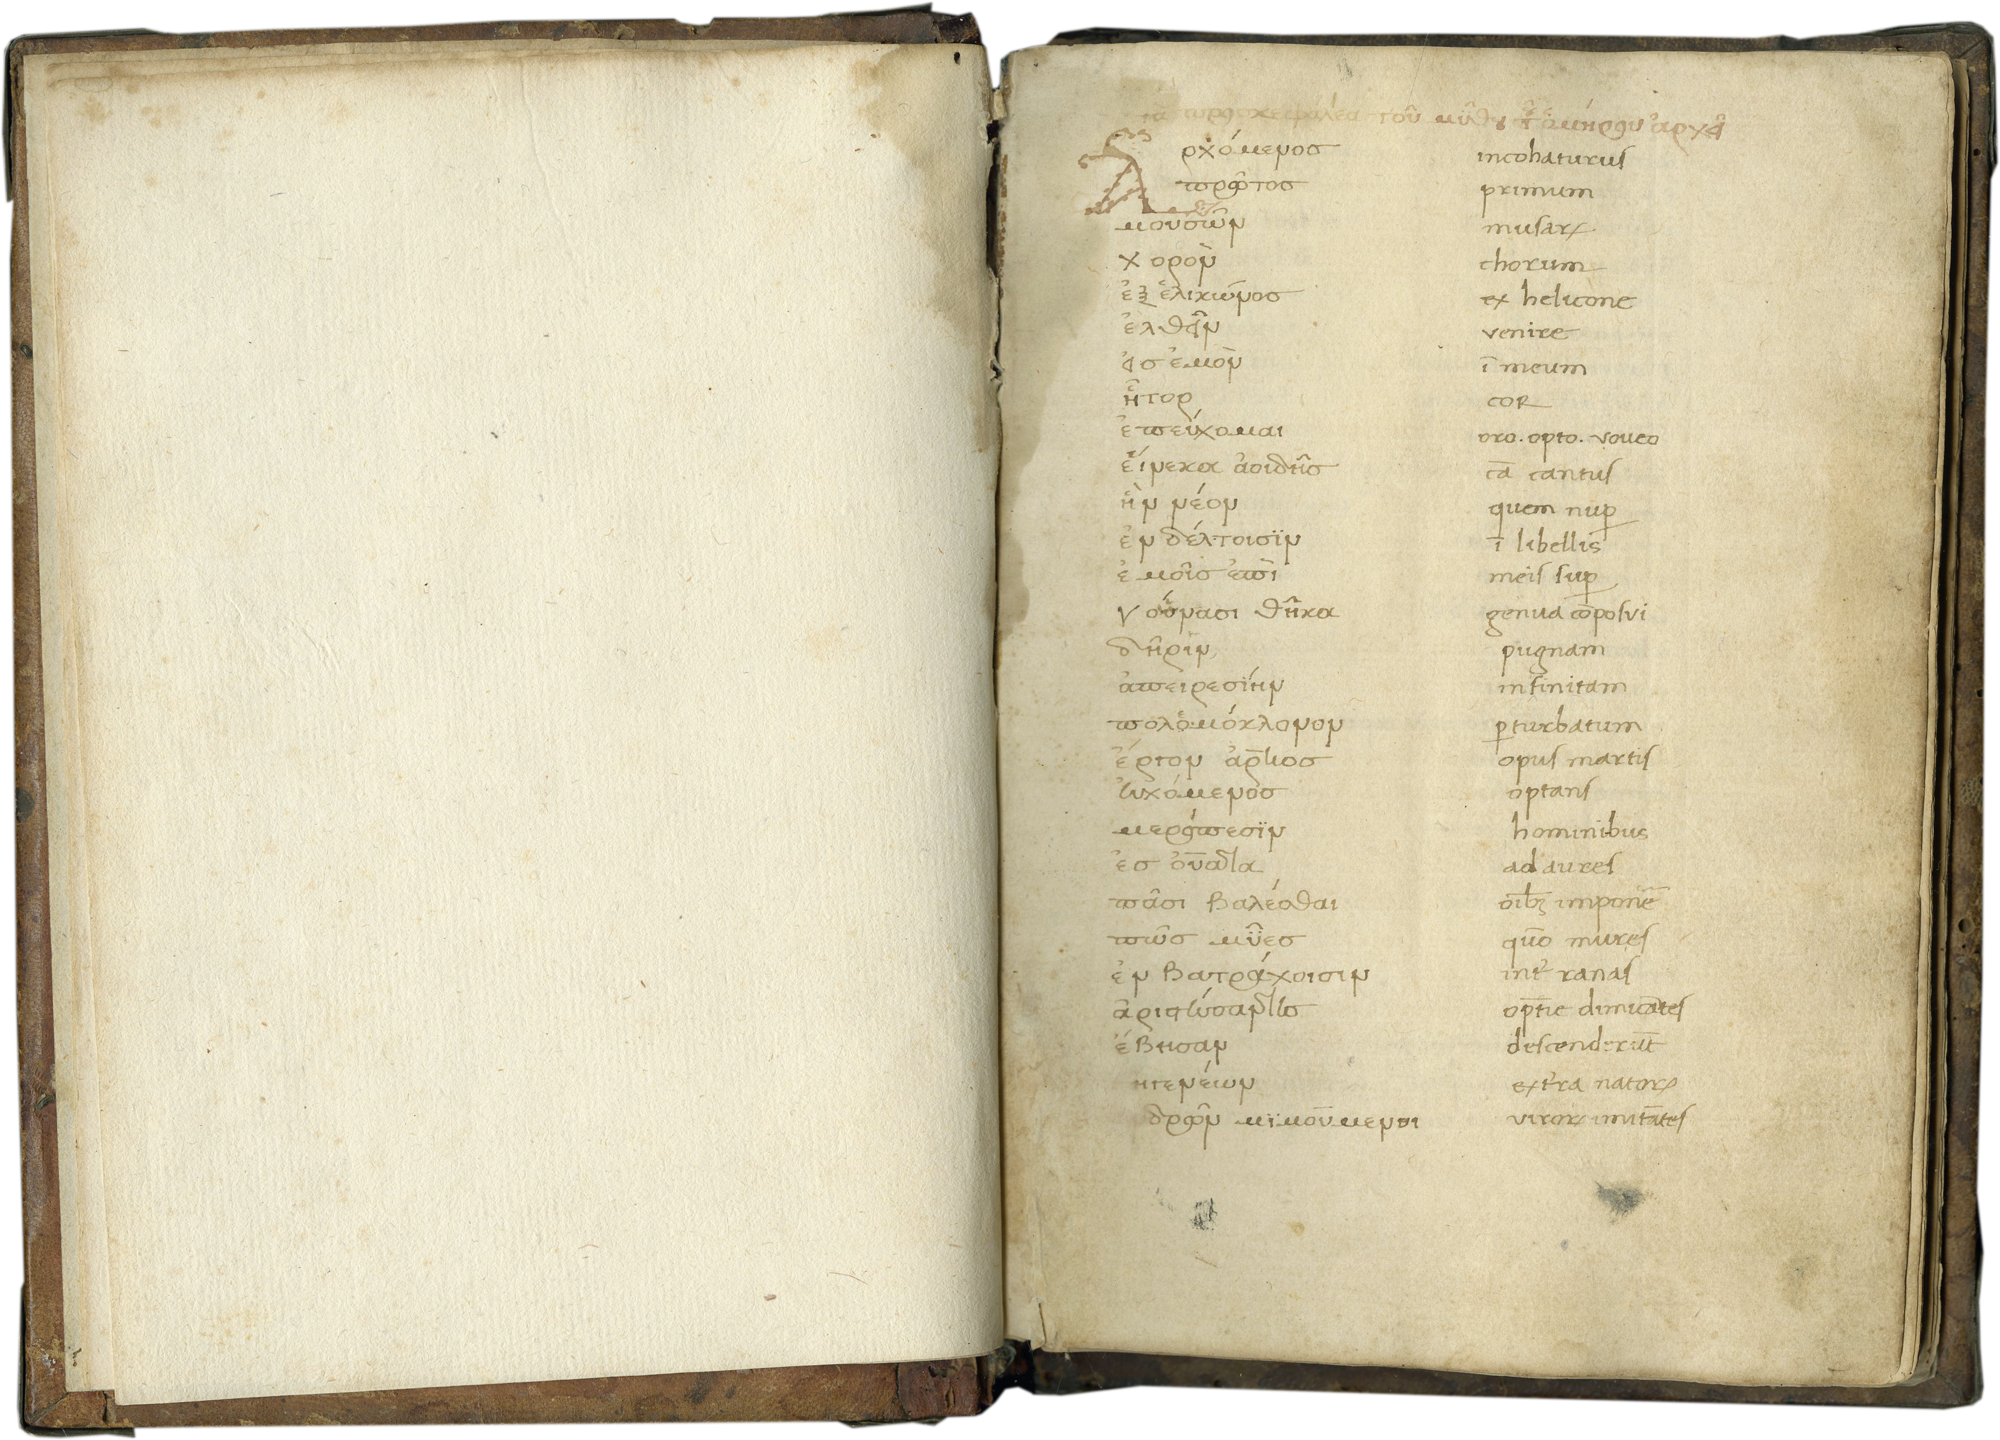 τοῦ μύθου τ ὁμήρου ἀρχεῖ
Αρχόμενος incohaturus
πρῶτος primum
μουσῶν musarꝝ
χορὸν chorum
ἐξ ἑλικῶνος ex helicone
ἐλθεῖν venire
εἰσ ἐμὸν ī meum
ἦτορ cor
ἐπεύχομαι oro. opto. voveo
εἵνεκα ἀοιδῆς cā cantus
ἣν νέον quem nuꝑ
ἐν δέλτοισϊν ī libellis
ἐμοῖς ἐπὶ meis suꝑ
γούνασι θῆκα genua cōposui
δῆριν pugnam
ἀπειρεσίην infinitam
πολεμόκλονον ꝑturbatum
ἔργον ἄρηος opus martis
εὐχόμενος optans
μερόπεσϊν hominibus
ἐσ οὔατα ad aures
πᾶσι βαλέσθαι oībꝫ imponē
πῶς μῦες quō mures
ἐν βατράχοισιν int ranas
ἀριστεύσαντες optīe dimicātes
ἔβησαν descenderūt
ηγενέων extra natorꝝ
δρῶν μϊμούμενοι virorꝝ imitātes